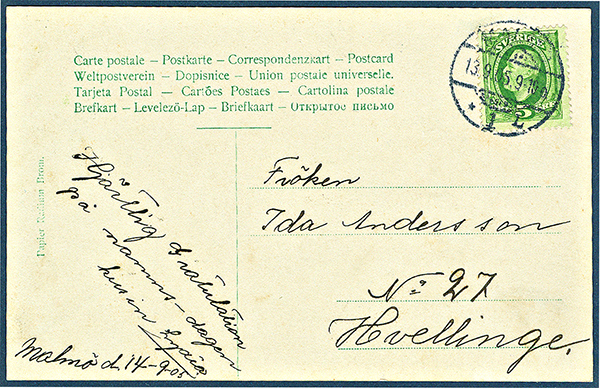 Carte postale – Postkarte – Correspondenzkart – Postcard
Weltpostverein – Dopisnice – Union postale universelle.
Tarjeta Postal – Cartões Postaes – Cartolina postale
Brefkart – Levelező-Lap – Briefkaart – Открытое письмо
SVERIGE
5
13.9.
1
Hjärtlig Gratulation
på namns-dagen
kusin
Malmö d. 14-9-05
Fröken
Ida Andersson
No 27
Hvellinge.
Papier Brom.